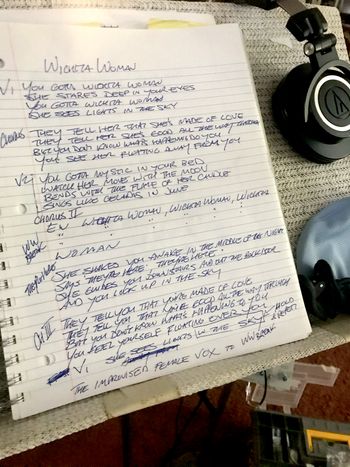 WICHITA WOMAN
V1 YOU GOTTA WICHITA WOMAN
SHE STARES DEEP IN YOUR EYES
YOU GOTTA WICHITA WOMAN
SHE SEES LIGHTS IN THE SKY
CHORUS THEY TELL HER THAT SHE'S MADE OF LOVE
THEY TELL HER SHE'S GOOD ALL THE WAY THROUGH
BUT YOU DON'T KNOW WHAT'S HAPPENING TO YOU
YOU SEE HER FLOATING AWAY FROM YOU
V2 YOU GOT A MYSTIC IN YOUR BED
WATCH HER MOVE WITH THE MOON
BENDS WITH THE FLAME OF HER CANDLE
SINGS LIKE CICADAS IN JUNE
CHORUS II
WICHITA WOMAN, WICHITA WOMAN, WICHITA
WOMAN
WW BREAK
SHE SHAKES YOU AWAKE IN THE MIDDLE OF THE NIGHT
SAYS THEY'RE HERE, THEY'RE HERE
SHE GUIDES YOU DOWNSTAIRS AND OUT THE BACK DOOR
AND YOU LOOK UP IN THE SKY
CH III THEY TELL YOU THAT YOU'RE MADE OF LOVE
THEY TELL YOU THAT YOU'RE GOOD ALL THE WAY THROUGH
BUT YOU DON'T KNOW WHAT'S HAPPENING TO YOU
YOU FEEL YOURSELF FLOATING OVER YOUR HOLD
V1 SHE SEES LIGHTS IN THE SKY REPEAT
THE IMPROVISED FEMALE VOX TO WW BREAK